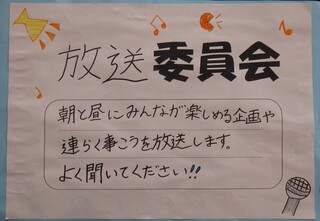 放送委員会
朝と昼にみんなが楽しめる企画や
連らく事こうを放送します。
よく聞いてください!!